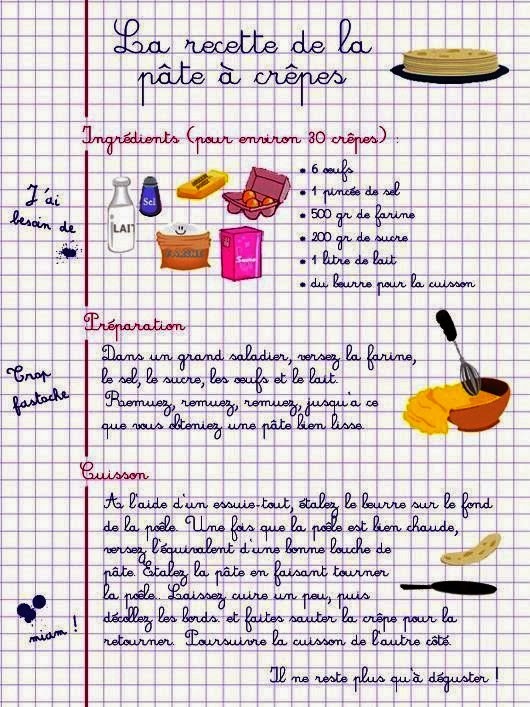 La recette de la
pâte à crêpes
Ingrédients (pour environ 30 crêpes) :
J'ai
besoin de
LAIT
Sel
FARINE
Sucre
• 6 œufs
• 1 pincée de sel
• 500 gr de farine
• 200 gr de sucre
• 1 litre de lait
• du beurre pour la cuisson
Préparation
Trop
fastoche
Dans un grand saladier, versez la farine,
le sel, le sucre, les œufs et le lait.
Remuez, remuez, remuez, jusqu'a ce
que vous obteniez une pâte bien lisse.
Cuisson
A l'aide d'un essuie-tout, étalez le beurre sur le fond
de la poêle. Une fois que la poêle est bien chaude,
versez l'équivalent d'une bonne louche de
pâte. Etalez la pâte en faisant tourner
la poêle. Laissez cuire un peu, puis
décollez les bords. et faites sauter la crêpe pour la
retourner. Poursuivre la cuisson de l'autre côté.
miam !
Il ne reste plus qu'à déguster !